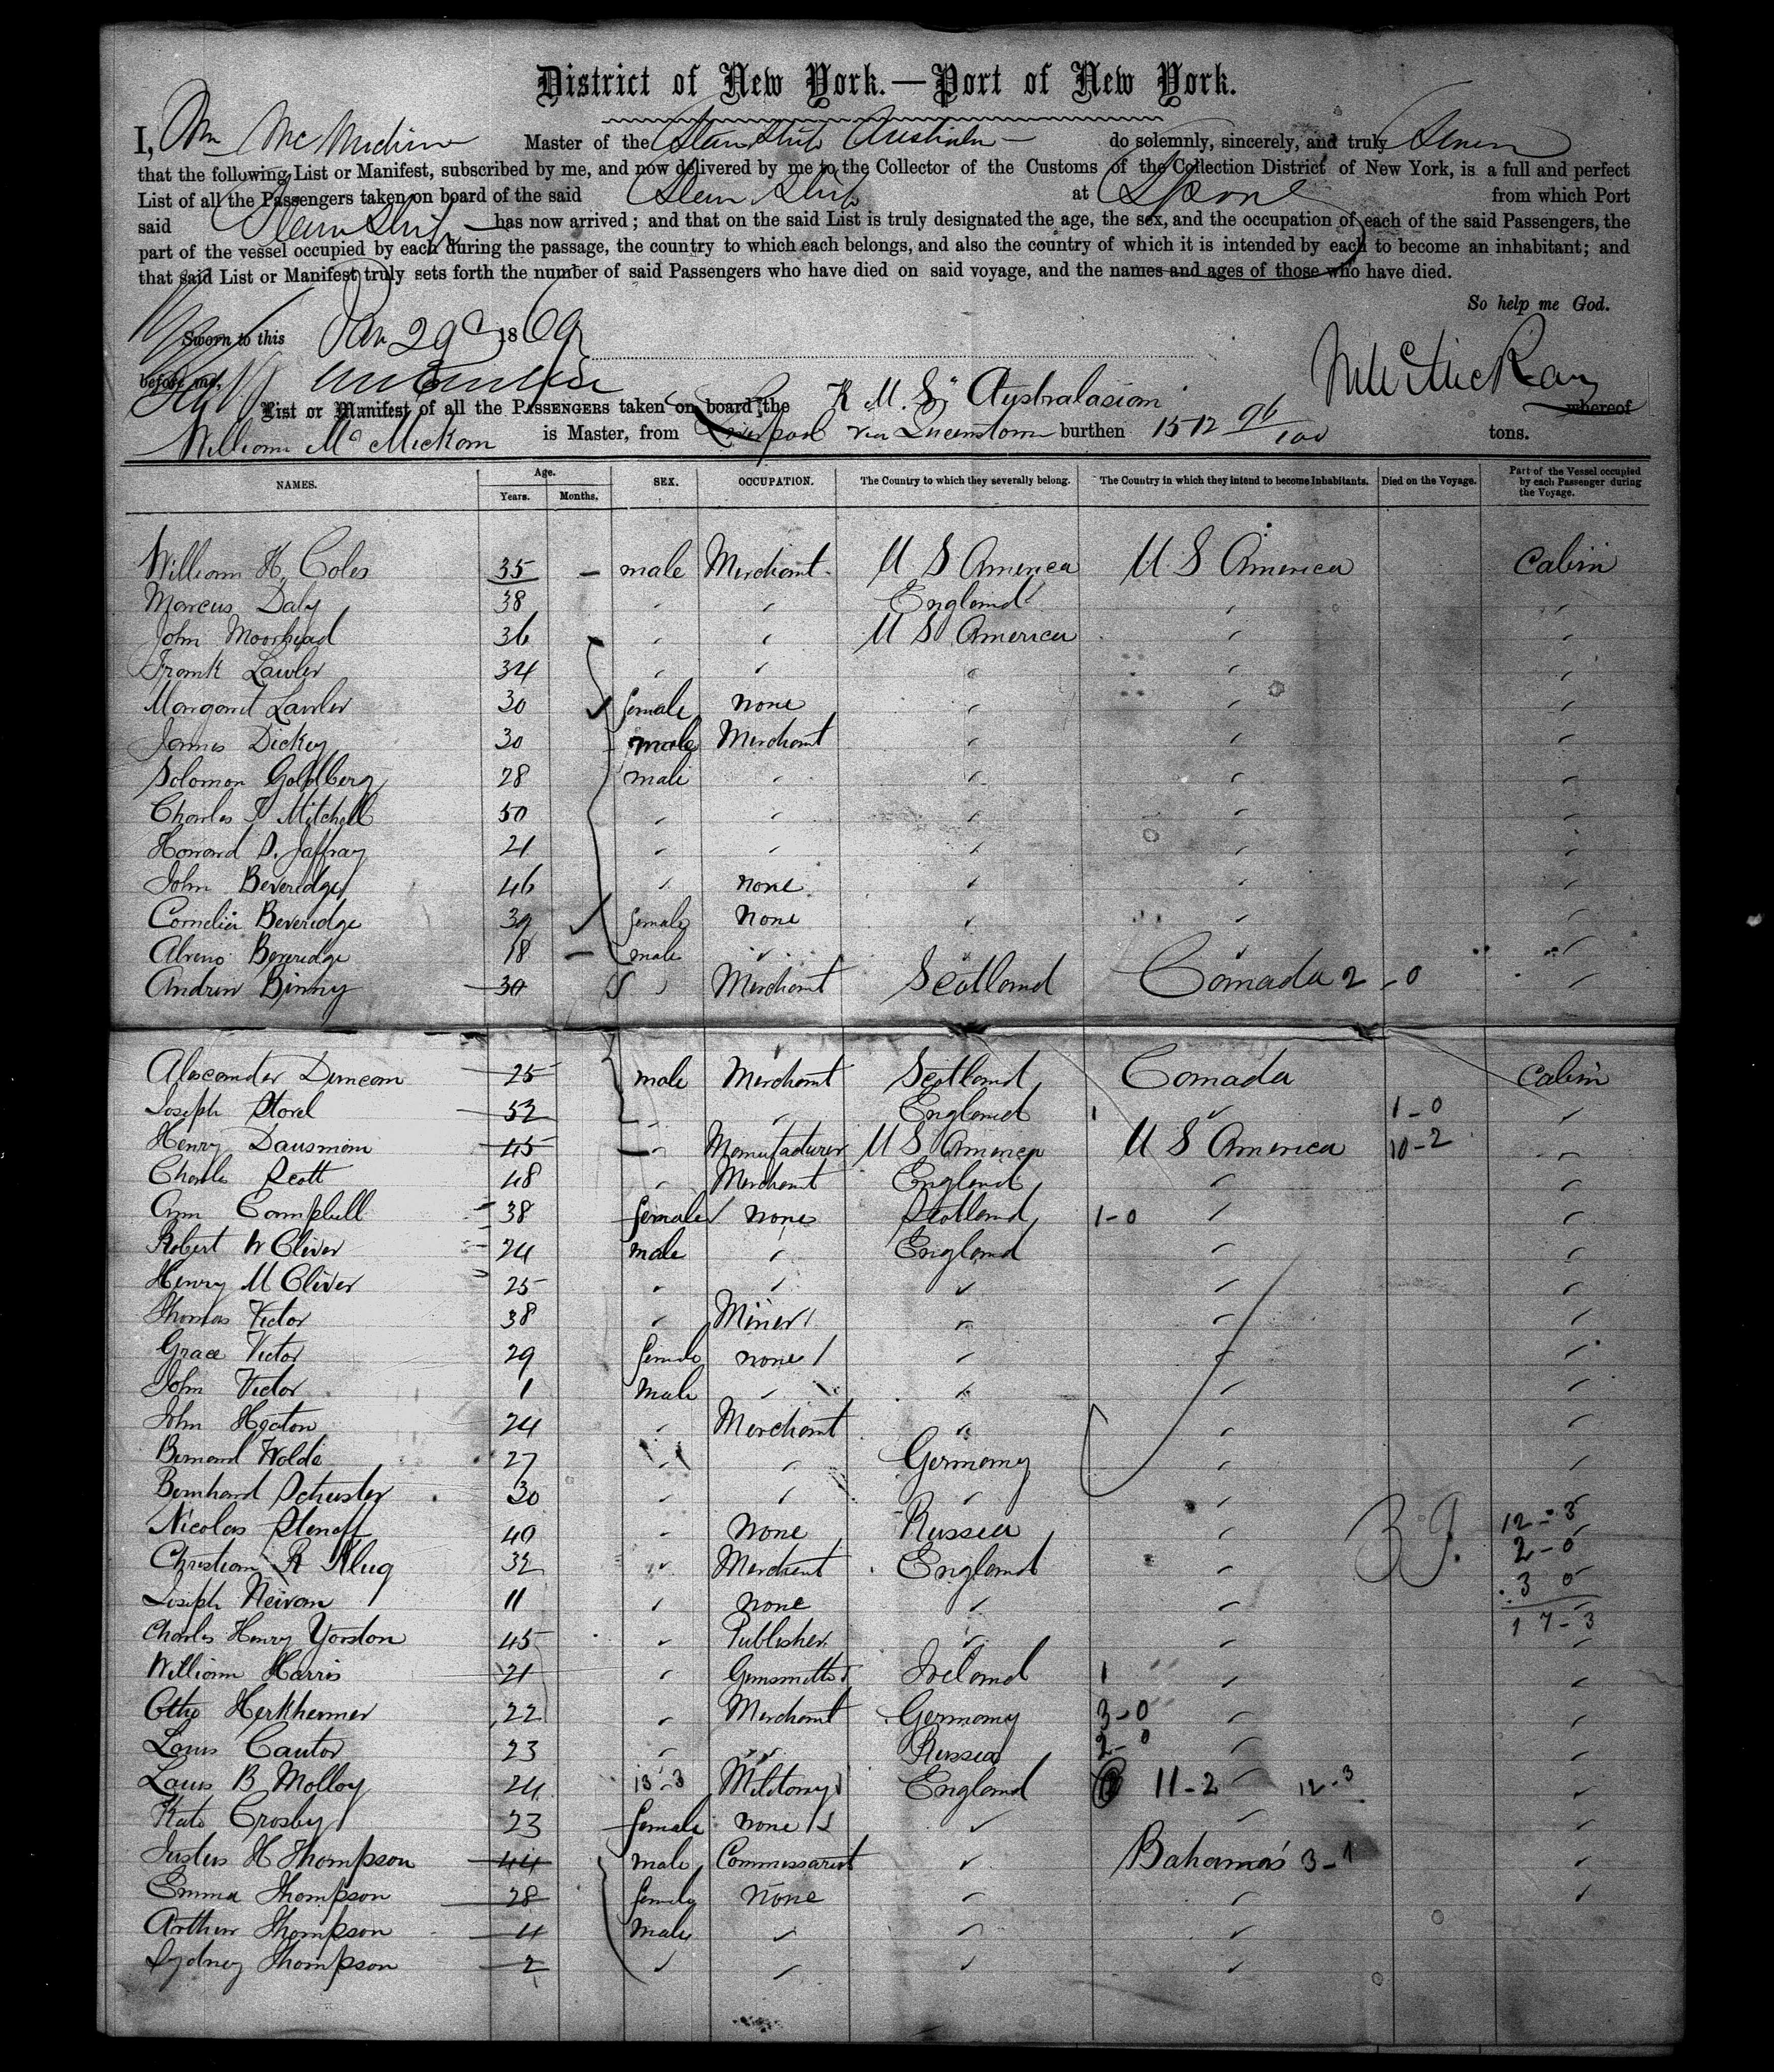 District of New York.—Port of New York.
I, Wm Mc Master of the Steam Ship do solemnly, sincerely, and truly Swear
that the following List or Manifest, subscribed by me, and now delivered by me to the Collector of the Customs of the Collection District of New York, is a full and perfect
List of all the Passengers taken on board of the said Steam Ship at from which Port
said Steam Ship has now arrived; and that on the said List is truly designated the age, the sex, and the occupation of each of the said Passengers, the
part of the vessel occupied by each during the passage, the country to which each belongs, and also the country of which it is intended by each to become an inhabitant; and
that said List or Manifest truly sets forth the number of said Passengers who have died on said voyage, and the names and ages of those who have died.
So help me God.
Sworn to this Jan 29 1869
before me,
List or Manifest of all the PASSENGERS taken on board the R. M. S. Australasian whereof
William McMickan is Master, from Liverpool via Queenstown burthen 1512 96/100 tons.
NAMES. Age. Years. Months. SEX. OCCUPATION. The Country to which they severally belong. The Country in which they intend to become Inhabitants. Died on the Voyage. Part of the Vessel occupied by each Passenger during the Voyage.
William H. Coles 35 — male Merchant U S America U S America Cabin
Marcus Daly 38 " " England " "
John Moorhead 36 " " U S America " "
Frank Lawler 34 " " " " "
Margaret Lawler 30 female none " " "
James Dickey 30 male Merchant " " "
Solomon Goldberg 28 male " " " "
Charles Mitchell 50 " " " " "
Howard S. Jaffray 21 " " " " "
John Beveridge 46 " none " " "
Cornelia Beveridge 39 female none " " "
Beveridge 18 — male " " " "
Andrew Binny 30 " Merchant Scotland Canada 2-0 "
Alexander Duncan 25 male Merchant Scotland Canada Cabin
Joseph 52 " " England 1 " 1-0 "
Henry Dausman 45 " Manufacturer U S America U S America 10-2 "
Charles Scott 48 " Merchant England " "
Ann Campbell 38 female none Scotland 1-0 " "
Robert W Oliver 24 male " England " "
Henry M Oliver 25 " " " " "
Thomas Victor 38 " Miner " " "
Grace Victor 29 female none " " "
John Victor 1 male " " " "
John Heaton 24 " Merchant " " "
Bernard Wolde 27 " " Germany " "
Bernhard Schuster 30 " " " " "
Nicolas 40 " none Russia " " 12-3
Christian R Klug 32 " Merchant England " " 2-0
Joseph 11 " none " " " 3 0
Charles Henry Yorston 45 " Publisher " " " 17-3
William Harris 21 " Gunsmith Ireland 1 " "
Otto Herkheimer 22 " Merchant Germany 3-0 " "
Louis Cantor 23 " " Russia 2-0 " "
Louis B Molloy 24 13-3 Military England 11-2 " 12-3 "
Kate Crosby 23 female none " " "
Justus H Thompson 44 male Commissariat " Bahamas 3-1 "
Emma Thompson 28 female none " " "
Arthur Thompson 4 male " " "
Sydney Thompson 2 " " " "